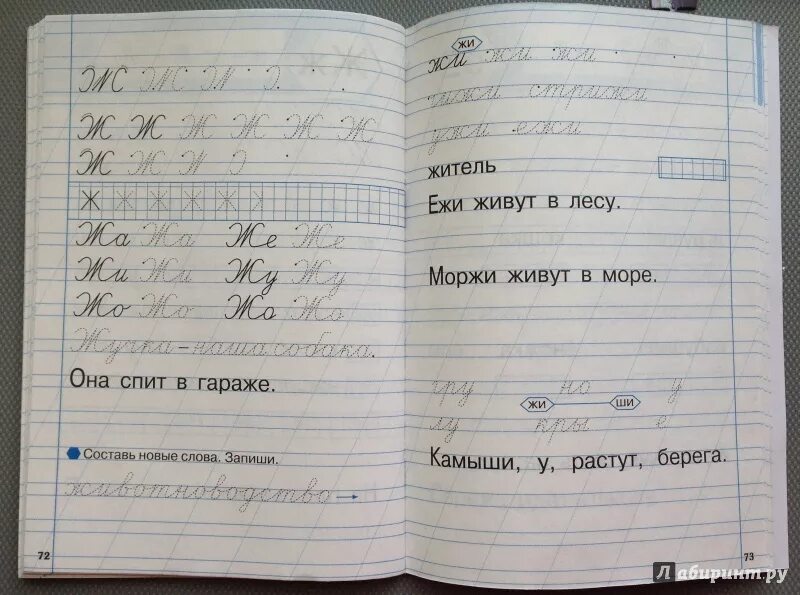 Ж
Ж Ж Ж Ж Ж Ж
Ж Ж
Ж Ж Ж Ж Ж
Жа Жа Же Же
Жи Жи Жу Жу
Жо Жо Жо Жо
Жучка – наша собака.
Она спит в гараже.
Составь новые слова. Запиши.
животноводство
72
жи
жи жи жи
чижи стрижи
ужи ежи
житель
Ежи живут в лесу.
Моржи живут в море.
гру но у
жи ши
лу кры е
Камыши, у, растут, берега.
73
Лабиринт.ру